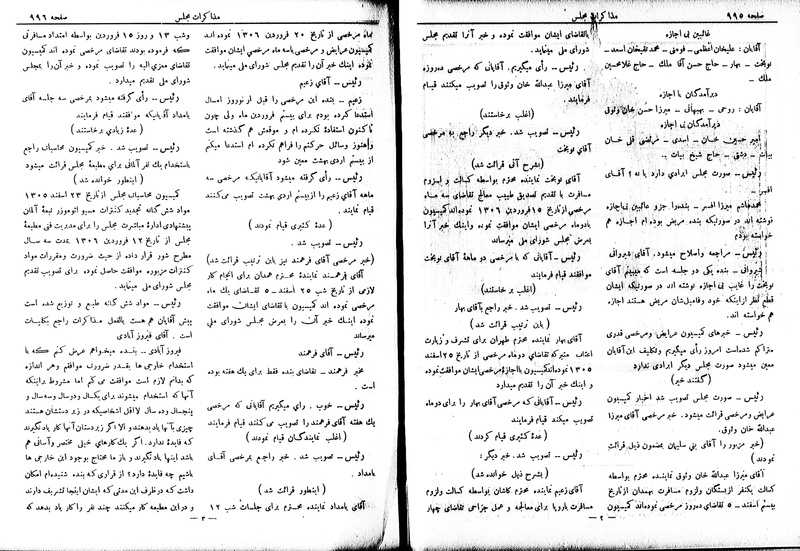 صفحه ۹۹۵
مذاکرات مجلس
غائبین بی اجازه
آقایان : علیخان اعظمی ـ فومنی ـ محمد تقیخان اسعد ـ
نوبخت ـ بهار ـ حاج حسن آقا ملک ـ حاج غلامحسین
ملک ـ
دیرآمدگان با اجازه
آقایان : روحی ـ بهبهانی ـ میرزا حسن خان وثوق
دیرآمدگان بی اجازه
امیر حسین خان ـ اسدی ـ مرتضی قلی خان
بیات ـ دشتی ـ حاج شیخ بیات ـ
رئیس ـ صورت مجلس ایرادی دارد یا نه ؟ آقای
افسر ـ
محمد هاشم میرزا افسر ـ بنده را جزو غائبین بی اجازه
نوشته اند در صورتیکه بنده مریض بوده ام اجازه هم
خواسته بودم
رئیس ـ مراجعه و اصلاح میشود. آقای شیروانی
شیروانی ـ بنده یکی دو جلسه است که میبینم آقای
نوبخت را غایب بی اجازه نوشته اند در صورتیکه
قطع نظر از اینکه خود و فامیلشان مریض هستند اجازه
هم خواسته اند.
رئیس ـ خبرهای کمیسیون عرایض و مرخصی قدری
متراکم شده است امروز رأی میگیریم و تکلیف این آقایان
معین میشود صورت مجلس دیگر ایرادی ندارد
(گفتند خیر)
رئیس ـ صورت مجلس تصویب شد اخبار کمیسیون
عرایض و مرخصی قرائت میشود. خبر مرخصی آقای میرزا
عبدالله خان وثوق.
(خبر مزبور را آقای بنی سلیمان بمضمون ذیل قرائت
نمودند)
آقای میرزا عبدالله خان وثوق نماینده محترم بواسطه
کسالت یکنفر از بستگان و لزوم مسافرت بهمدان از تاریخ
بیستم اسفند ۱۳۰۵ ده روز مرخصی نموده اند کمیسیون
بالتقاضای ایشان موافقت نموده و خبر آنرا تقدیم مجلس
شورای ملی مینماید.
رئیس ـ رأی میگیریم. آقایانی که مرخصی ده روزه
آقای میرزا عبدالله خان وثوق را تصویب میکنند قیام
فرمایند.
(اغلب برخاستند)
رئیس ـ تصویب شد. خبر دیگر راجع به مرخصی
آقای نوبخت
(بشرح آتی قرائت شد)
آقای نوبخت نماینده محترم بواسطه کسالت و لزوم
مسافرت با تقدیم تصدیق طبیب معالج تقاضای سه ماه
مرخصی از تاریخ ۱۵ فروردین ۱۳۰۶ نموده اند کمیسیون
با دو ماه مرخصی ایشان موافقت نموده و اینک خبر آنرا
بعرض مجلس شورای ملی میرساند
رئیس ـ آقایانی که با مرخصی دو ماهۀ آقای نوبخت
موافقند قیام فرمایند
(اغلب برخاستند)
رئیس ـ تصویب شد. خبر راجع بآقای بهار
(باین ترتیب قرائت شد)
آقای بهار نماینده محترم طهران برای تشرف و زیارت
اعتاب متبرکه تقاضای دو ماه مرخصی از تاریخ ۲۵ اسفند
۱۳۰۵ نموده اند کمیسیون با اجازه مرخصی ایشان موافقت نموده
و اینک خبر آن را تقدیم میدارد
رئیس ـ آقایانی که مرخصی آقای بهار را برای دو ماه
تصویب میکنند قیام فرمایند
(عدۀ کثیری قیام کردند)
رئیس ـ تصویب شد. خبر دیگر :
(بشرح ذیل خوانده شد)
آقای زعیم نماینده محترم کاشان بواسطه کسالت و لزوم
مسافرت باروپا برای معالجه و عمل جراحی تقاضای چهار
ـ ۲ ـ
مذاکرات مجلس
صفحه ۹۹۶
ماه مرخصی از تاریخ ۲۰ فروردین ۱۳۰۶ نموده اند
کمیسیون عرایض و مرخصی با سه ماه مرخصی ایشان موافقت
نموده اینک خبر آن را تقدیم مجلس شورای ملی مینماید.
رئیس ـ آقای زعیم
زعیم ـ بنده این مرخصی را قبل از نوروز امسال
استدعا کرده بودم برای بیستم فروردین ماه ولی چون
تا کنون استفاده نکرده ام و موقعش هم گذشته است
و هنوز وسائل حرکتم را فراهم نکرده ام استدعا میکنم
از بیستم اردی بهشت معین شود
رئیس ـ رأی گرفته میشود آقایانیکه مرخصی سه
ماهه آقای زعیم را از بیستم اردی بهشت تصویب می کنند
قیام نمایند.
(عدۀ کثیری قیام نمودند)
رئیس ـ تصویب شد.
(خبر مرخصی آقای فرهمند نیز باین ترتیب قرائت شد)
آقای فرهمند نماینده محترم همدان برای انجام کار
لازمی از تاریخ شب ۲۵ اسفند ۵ تقاضای یك ماه
مرخصی نموده اند کمیسیون با تقاضای ایشان موافقت
نموده اینك خبر آن را بعرض مجلس شورای ملی
میرساند
رئیس ـ آقای فرهمند
فرهمند ـ تقاضای بنده فقط برای یك هفته بوده
است.
رئیس ـ خوب . رأی میگیریم آقایانی که مرخصی
یك هفته آقای فرهمند را تصویب می کنند قیام فرمایند
(اغلب نمایندگان قیام نمودند)
رئیس ـ تصویب شد. خبر راجع بمرخصی آقای
بامداد.
(اینطور قرائت شد)
آقای بامداد نماینده محترم برای جلسات شب ۱۲
وشب ۱۳ و روز ۱۵ فروردین بواسطه امتداد مسافرتی
که فرموده بودند تقاضای مرخصی نموده اند کمیسیون
تقاضای معزی الیه را تصویب نموده و خبر آنرا بمجلس
شورای ملی تقدیم میدارد.
رئیس ـ رأی گرفته میشود بمرخصی سه جلسه آقای
بامداد آقایانیکه موافقند قیام فرمایند
(عدۀ زیادی برخاستند)
رئیس ـ تصویب شد . خبر کمیسیون محاسبات راجع
باستخدام یك نفر آلمانی برای مطبعۀ مجلس قرائت میشود
(اینطور خوانده شد)
کمیسیون محاسبات مجلس از تاریخ ۲۳ اسفند ۱۳۰۵
مواد شش گانه تجدید کنترات مسیو اتومورز تبعۀ آلمان
پیشنهادی ادارۀ مباشرت مجلس را برای مدیریت فنی مطبعۀ
مجلس از تاریخ ۱۲ فروردین ۱۳۰۶ بمدت سه سال
مطرح شور قرار داده از حیث ضرورت و مقررات مواد
کنترات مزبوره موافقت حاصل نموده برای تصویب تقدیم
مجلس شورای ملی مینماید.
رئیس ـ مواد شش گانه طبع و توزیع شده است
پیش آقایان هم هست بالفعل مذاکرات راجع بکلیات
است . آقای فیروزآبادی
فیروزآبادی ـ بنده میخواهم عرض کنم که با
استخدام خارجی ها بقدر ضرورت موافقم و هر اندازه
که بدانم لازم است موافقت می کنم اما مشروط براینکه
آنها که استخدام میشوند برای یکسال و دو سال و سه سال و
پنجسال و ده سال لااقل اشخاصیکه در زیر دستشان هستند
چیزی بآنها یاد بدهند و الا اگر زیر دستان آنها کار یاد نگیرند
که فایده ندارد. اگر یك کارهای خیلی مختصر و آسانی هم
باشد اینها یاد نگیرند و باز ما محتاج بوجود این خارجی ها
باشیم چه فایده دارد؟ از قراری که بنده شنیده ام امکان
داشت که در ظرف این مدتی که ایشان اینجا تشریف دارند
و در این مطبعه کار میکنند چند نفر را کار یاد بدهد که
ـ ۳ ـ